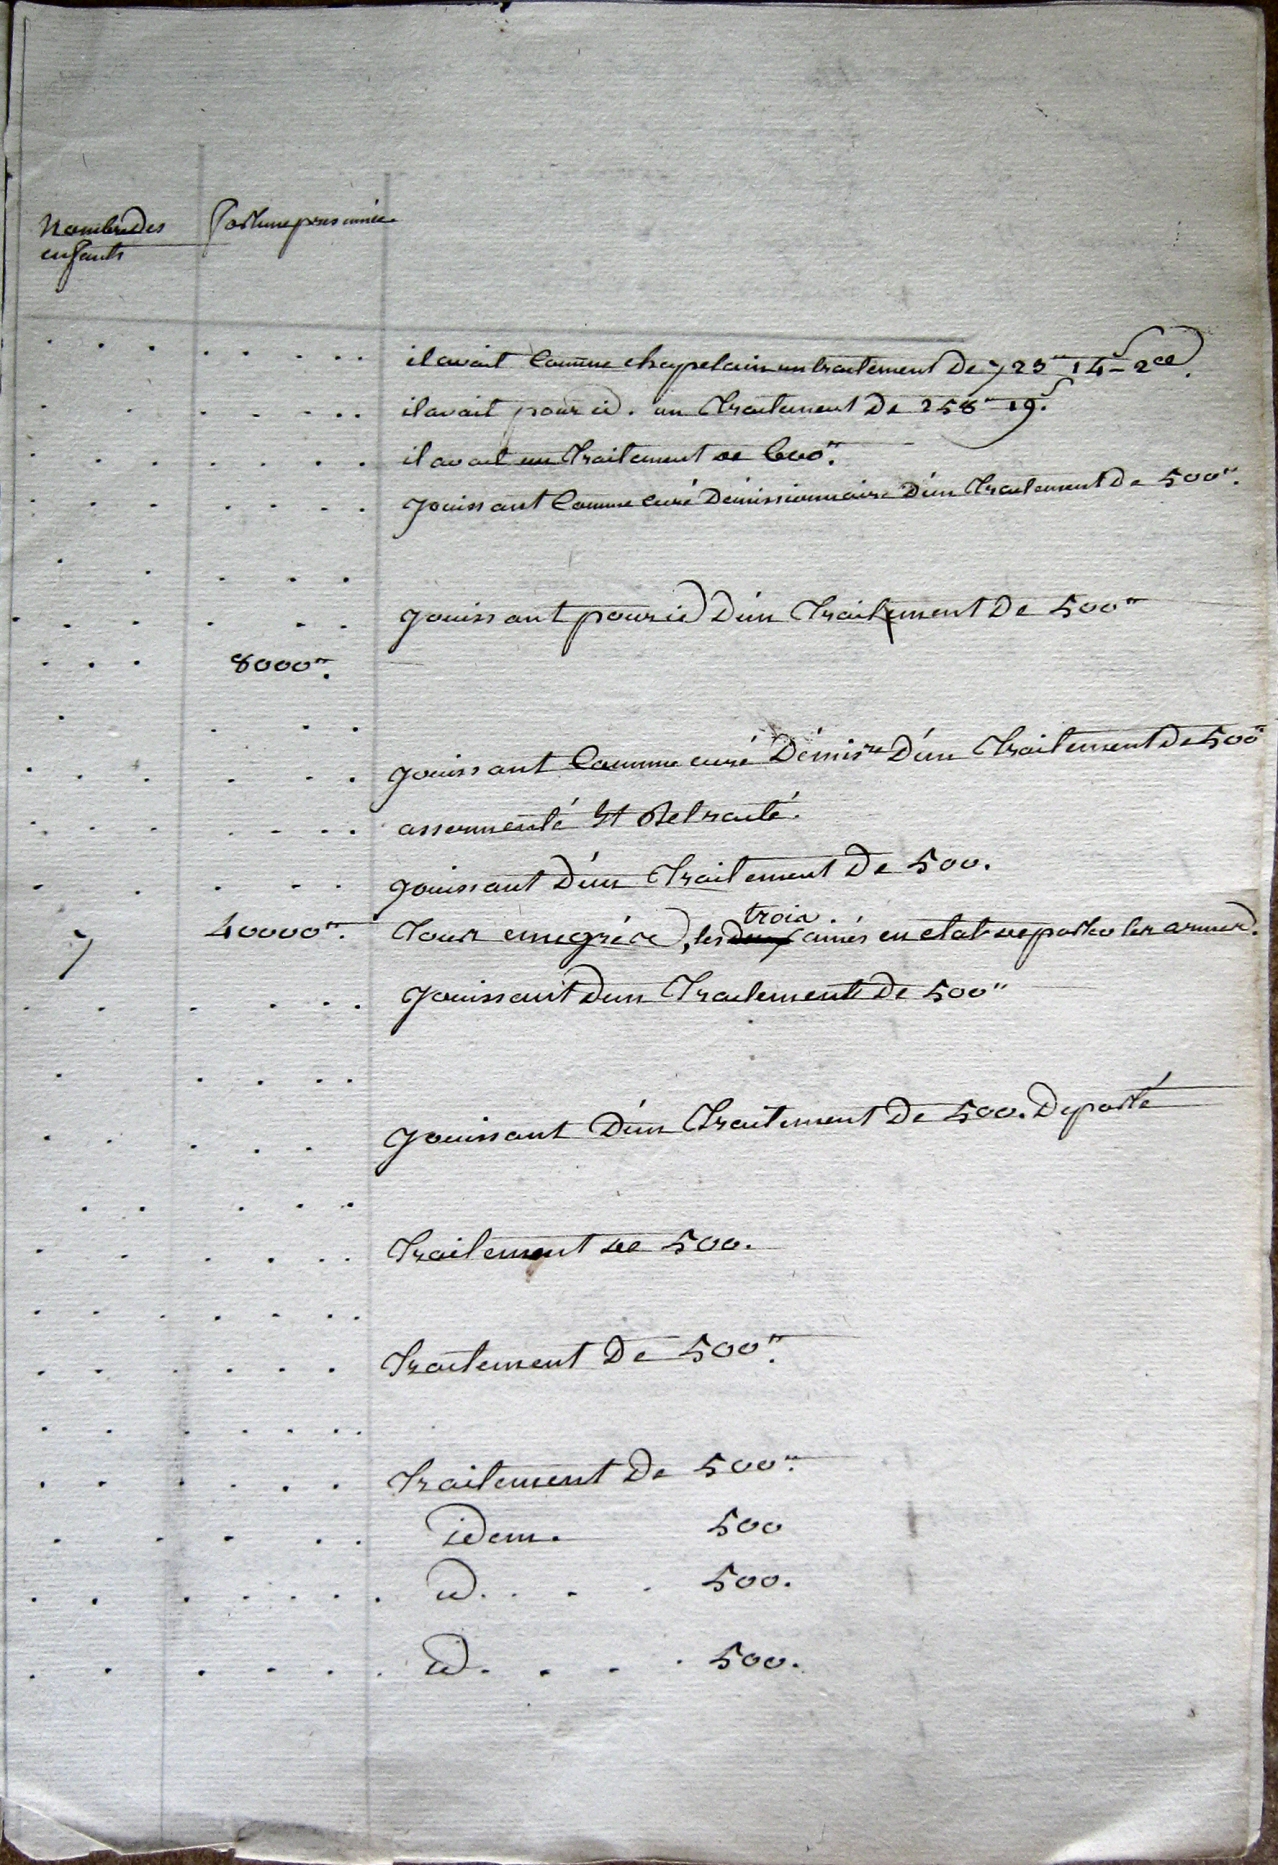 Nombre Des Fortune presumée
enfants
il avait Comme chapelain un traitement De 723tt 14s 2d.
il avait pour id. un Traitement De 258tt 19s.
il avait un Traitement de 600tt.
Jouissant Comme curé Démissionnaire D'un Traitement De 500tt.
Jouissant pour id D'un Traitement De 500tt
8000tt.
Jouissant Comme curé Démisre D'un Traitement De 500tt
assermenté Et Retracté.
Jouissant D'un Traitement De 500.
trois.
7 40000tt. Tous emigrés, les deux ainés en etat de porter les armes.
Jouissant D'un Traitement De 500tt
Jouissant D'un Traitement De 500. Deporté
Traitement de 500.
Traitement De 500tt.
Traitement De 500tt.
idem. 500
id. . . . 500.
id. . . . 500.